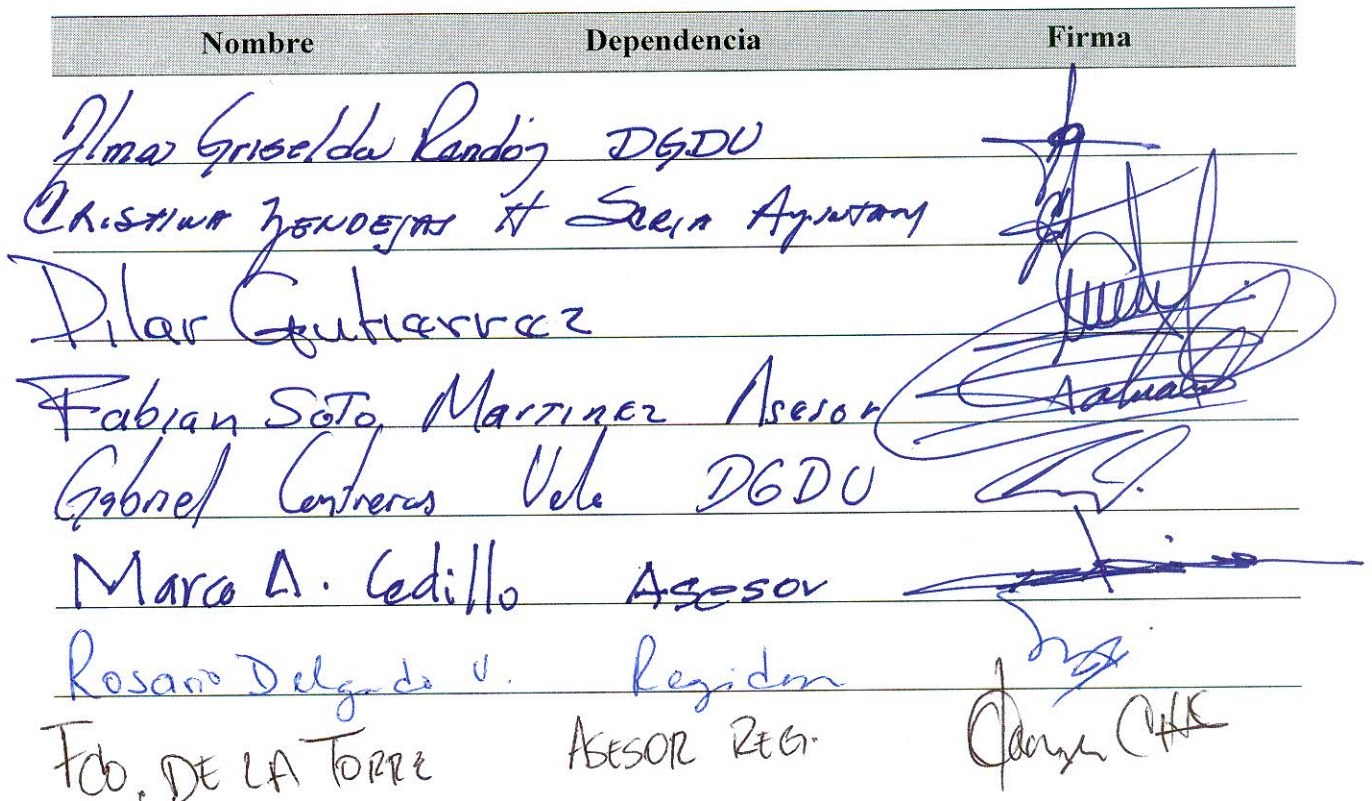 Nombre Dependencia Firma
Alma Griselda Rendón DGDU
CRISTINA ZENDEJAS H SECRIA Ayuntam
Pilar Gutierrez
Fabian Soto Martinez Asesor
Gabriel Contreras Vela DGDU
Marco A. Cedillo Asesor
Rosario Delgado V. Regidora
FCO. DE LA TORRE ASESOR REG.